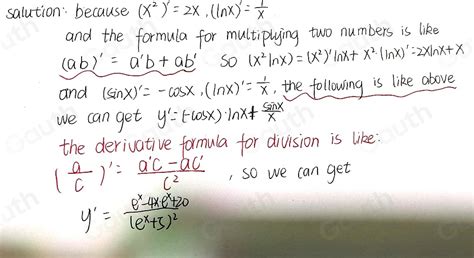 salution: because (x²)' = 2x, (lnx)' = 1/x
and the formula for multiplying two numbers is like
(ab)' = a'b + ab' so (x² lnx) = (x²)' lnx + x² · (lnx)' = 2xlnx + x
and (sinx)' = -cosx, (lnx)' = 1/x, the following is like above
we can get y' = (-cosx) · lnx + sinx/x
the derivative formula for division is like:
(a/c)' = (a'c - ac')/c², so we can get
y' = (e^x - 4xe^x + 20)/(e^x + 5)²